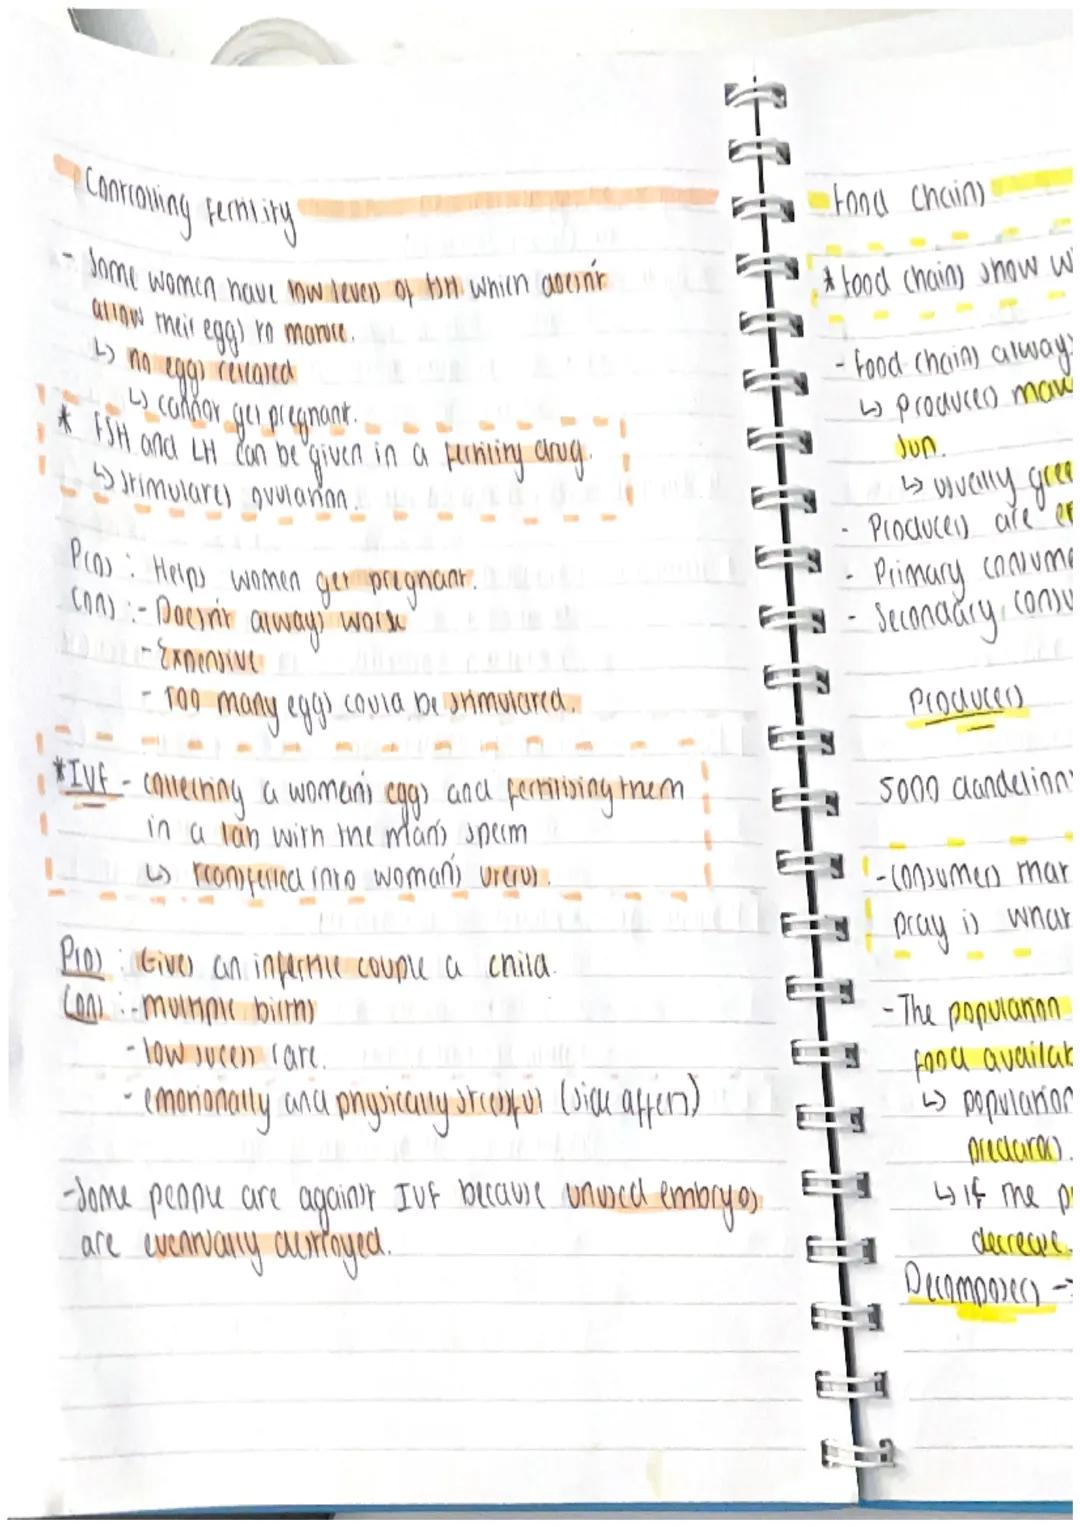 Controlling fertility
- Some women have low levels of FSH which doesn't
allow their eggs to mature.
↳ no eggs released
↳ cannot get pregnant.
* FSH and LH can be given in a fertility drug.
↳ stimulates ovulation.
Pros : Helps women get pregnant.
Cons : - Doesn't always work
- Expensive
- Too many eggs could be stimulated.
* IVF - collecting a woman's eggs and fertilising them
in a lab with the man's sperm
↳ transferred into woman's uterus.
Pros : Gives an infertile couple a child.
Cons : - multiple births
- low sucess rate.
- emotionally and physically stressful (side affects)
- Some people are against IVF because unused embryos
are eventually destroyed.
food chains
* food chains show
- food chains always
↳ produces
sun.
↳ usually
- Producers are
- Primary
- Secondary
Producers
5000 dandelions
- consumers that
pray is what
- The population
food
↳ population
predators.
↳ if the
decrease.
Decomposers →